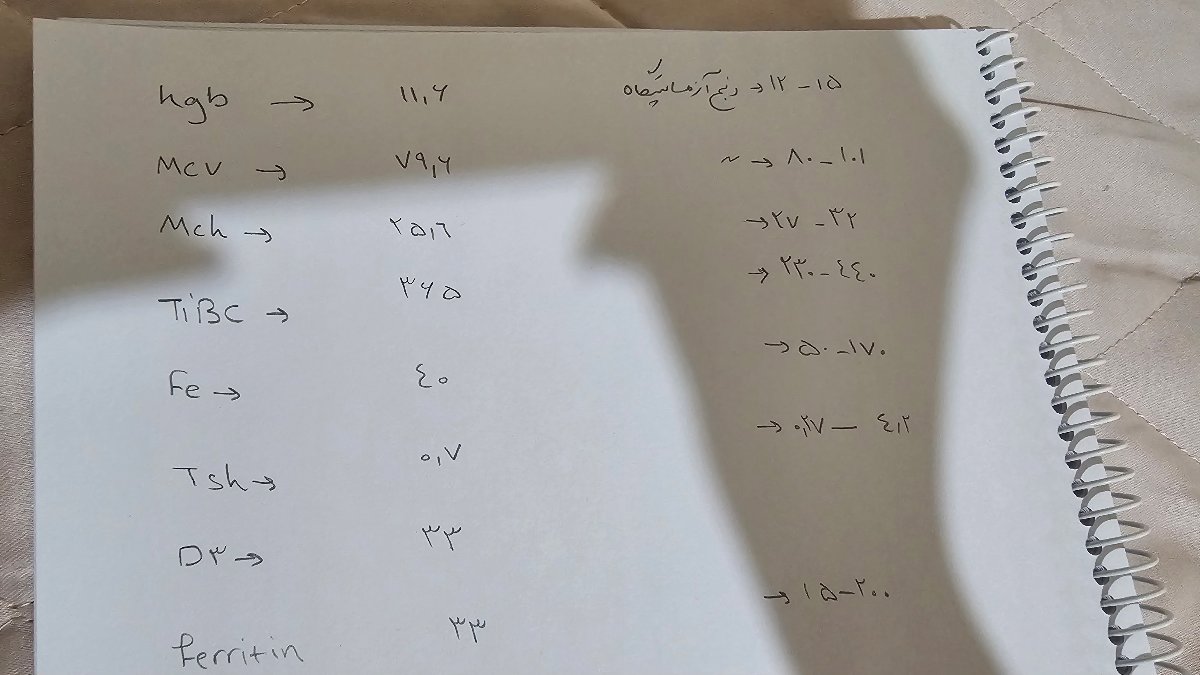 hgb → ۱۱,۶ رنج آزمایشگاه → ۱۲-۱۵
Mcv → ۷۹,۶ ~ → ۸۰-۱۰۱
Mch → ۲۵,٦ → ۲۷-۳۲
TiBC → ۳۶۵ → ۲۳۰-٤٤۰
Fe → ٤۰ → ۵۰-۱۷۰
Tsh → ۰,۷ → ۰,۲۷ - ٤,۲
D۳ → ۳۳
ferritin ۳۳ → ۱۵-۲۰۰